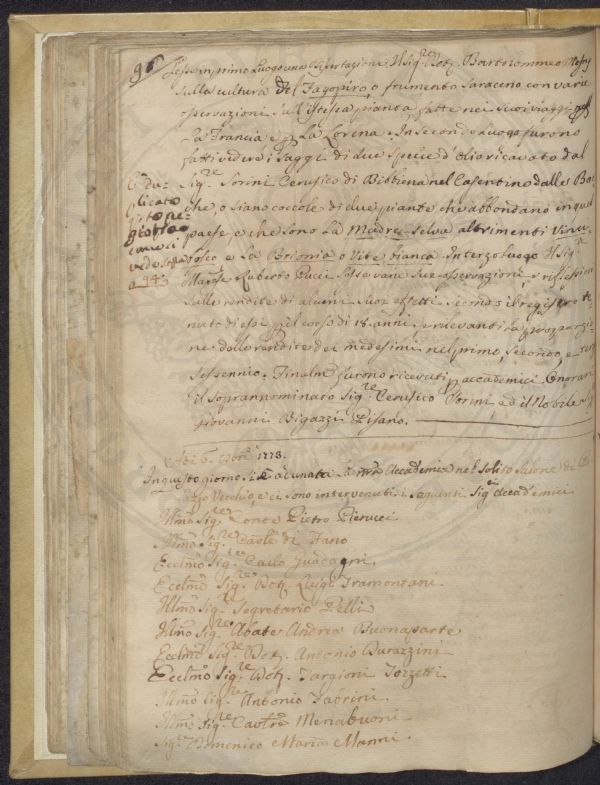 96
Lesse in primo Luogo una Dissertazione Il Sig.re Dott. Bartolommeo Mesny
sulla cultura del Fagopiro, o frumento Saraceno con varie
osservazioni sull'istessa pianta fatte nei suoi viaggi per
La Francia e per La Lorena. In Secondo Luogo furono
fatti vedere i saggi di due specie d'olio ricavato dal
Sig.re Sorini Cerusico di Bibbiena nel Casentino dalle Bac
che, o siano coccole di due piante che abbondano in quel
paese, e che sono La Madre selva altrimenti Vincu
bosco e La Brionia o Vite bianca. In terzo luogo Il Sig.re
March.se Ruberto Pucci lesse varie sue osservazioni, e riflessioni
sulle rendite di alcuni suoi effetti secondo il registro te
nuto di essi pel corso di 18. anni, e rilevanti la proporzio
ne delle rendite dei medesimi nel primo, secondo, e terzo
sessennio. Finalm.e furono ricevuti p. accademici Onorari
il soprannominato Sig.re Cerusico Sorini ed il Nobile Sig.
Giovanni Bigazzi Pisano.
È du-
plicato
questo
vede
a 94
Adi 6. 1773.
In questo giorno si è adunata la nra Accademia nel solito Salone di
Vecchio, e ci sono intervenuti i seguenti Sig.ri Accademici
Illmo Sig.re Conte Pietro Pierucci
Illmo Sig.re Cav.re di Fano
Eccelmo Sig.re Carlo Guadagni.
Eccelmo Sig.re Dott. Luigi Tramontani.
Illmo Sig.re Segretario Pelli
Illmo Sig.re Abate Andrea Buonaparte
Eccelmo Sig.re Dott. Antonio Durazzini
Eccelmo Sig.re Dott. Targioni Tozzetti
Illmo Sig.re Antonio Fabrini.
Illmo Sig.re Menabuoni
Sig.re Domenico Maria Manni.